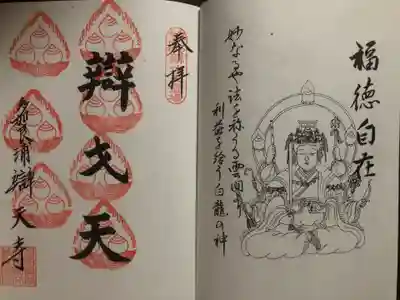 福徳自在
妙なるや法を称うる雲間より
利益を給う白龍の神
奉拝
辯才天
辯天寺